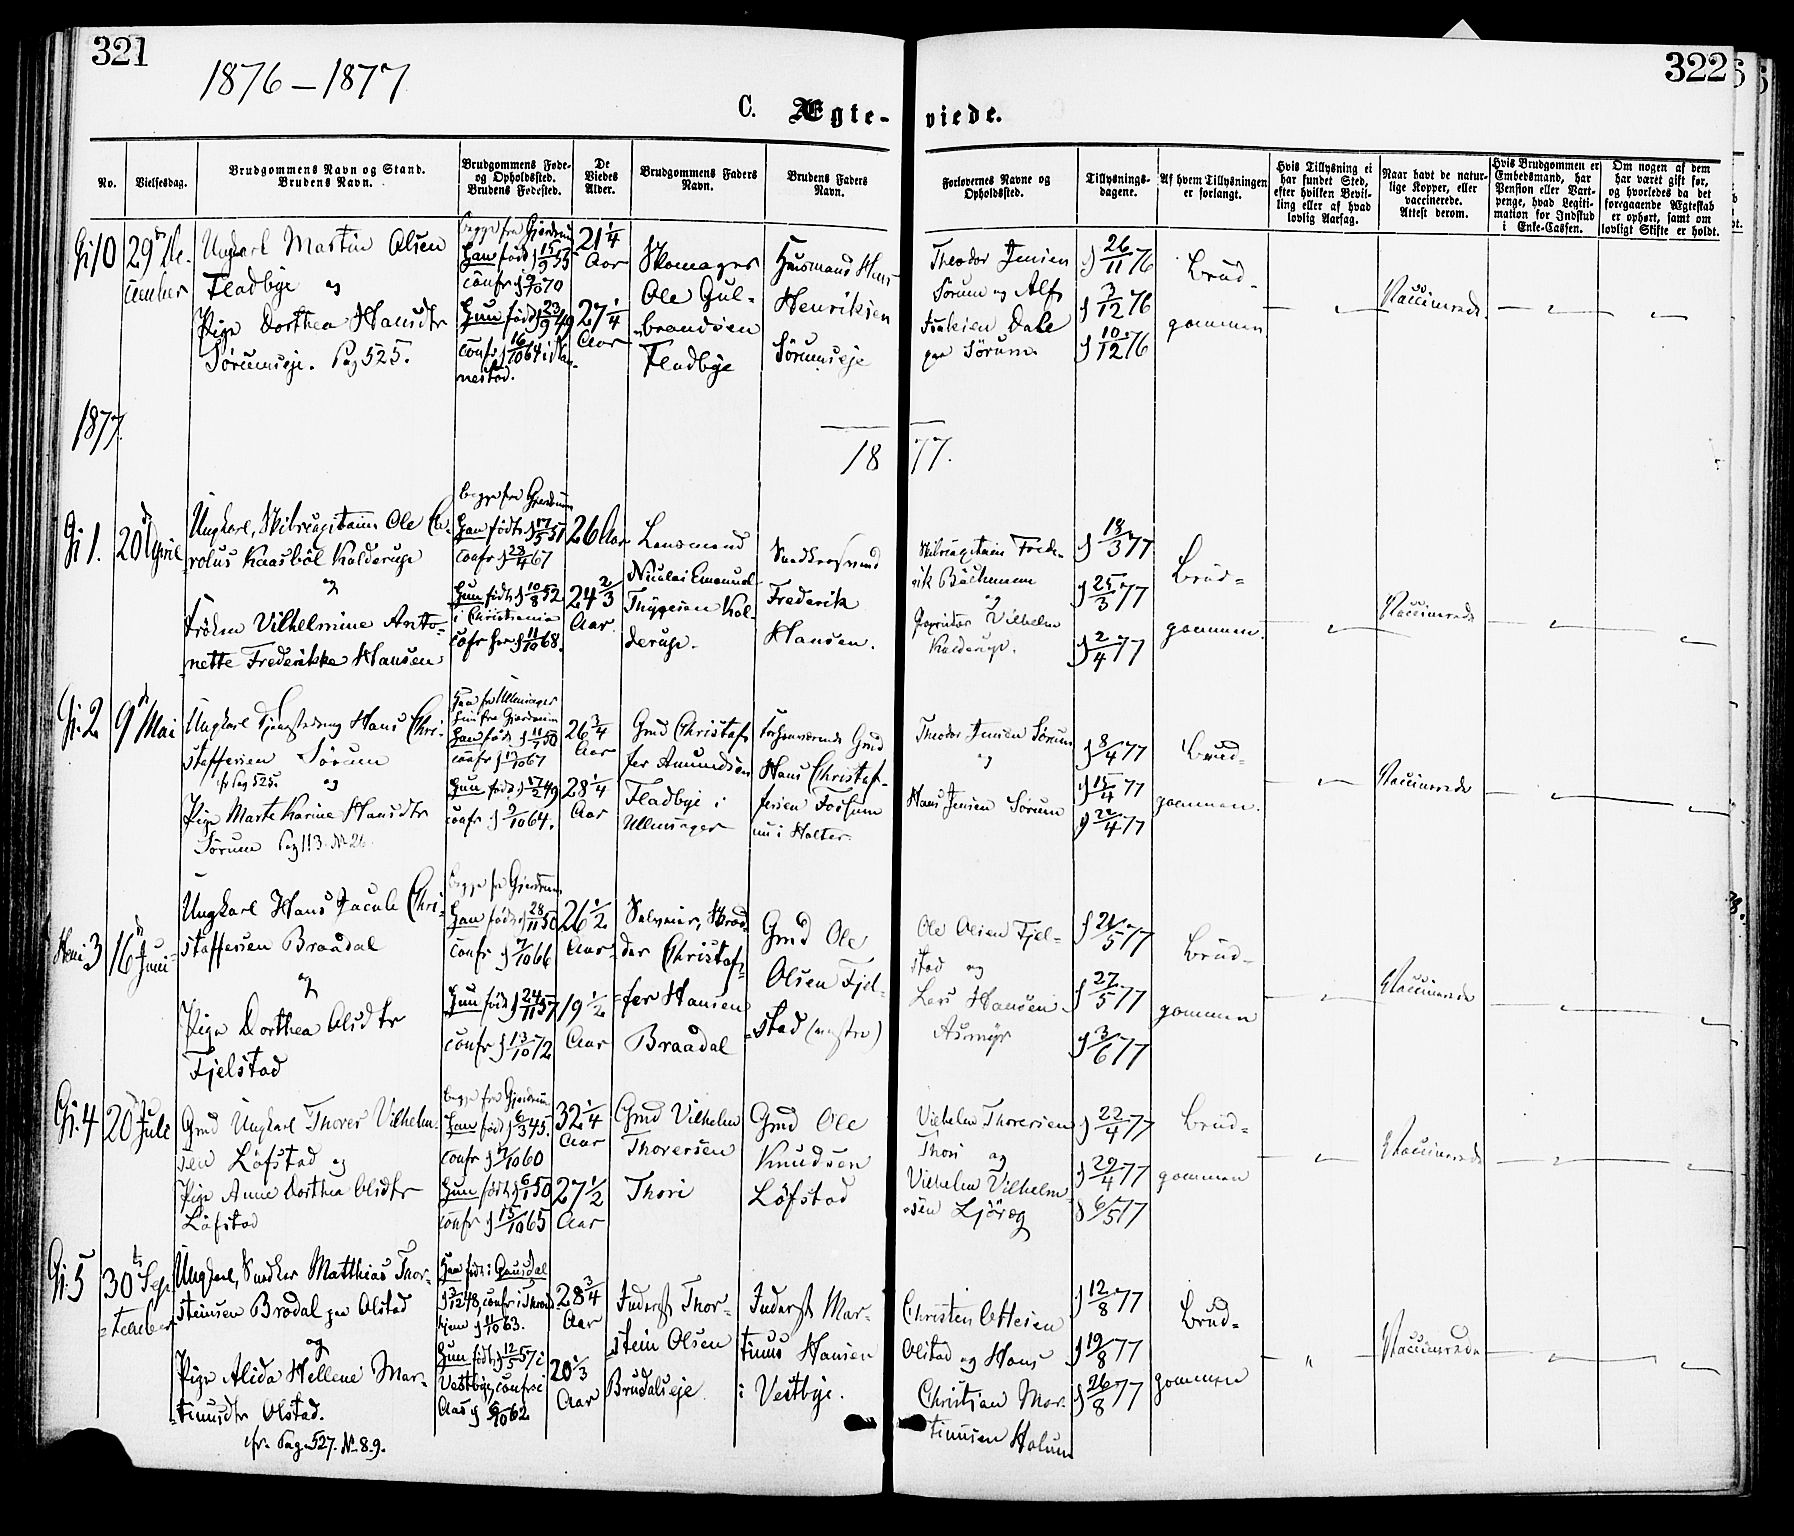 321
322
1876 – 1877
C. Ægteviede.
No.
Vielsesdag.
Brudgommens Navn og Stand.
Brudens Navn.
Brudgommens Føde-
og Opholdssted.
Brudens Fødested.
De
Viedes
Alder.
Brudgommens Faders
Navn.
Brudens Faders
Navn.
Forlovernes Navne og
Opholdssted.
Tillysnings-
dagene.
Af hvem Tillysningen
er forlangt.
Hvis Tillysning ei
har fundet Sted,
efter hvilken Bevil-
ling eller af hvad
lovlig Aarsag.
Naar havt de natur-
lige Kopper, eller
vaccinerede.
Attest derom.
Hvis Brudgommen er
Embedsmand, har
Pension eller Vart-
penge, hvad Legiti-
mation for Indskud
i Enke-Cassen.
Om nogen af dem
har været gift før,
og hvorledes da det
foregaaende Ægteskab
er ophørt, samt om
lovligt Skifte er holdt.
Gj 10
29de De-
cember
Ungkarl Martin Olsen
Fladbye og
Pige Dorthea Hansdtr
Sørumseje. Pag 525.
begge fra Gjerdrum
Han født d 15/9 55
confr d 9/10 70
Hun født d 23/9 49
confr d 16/10 64 i Nan-
nestad.
21 1/4
Aar
27 1/4
Aar
Skomager
Ole Gul-
brandsen
Fladbye
Husmand Hans
Henriksen
Sørumseje
Theodor Jensen
Sørum og Alf
Isaksen Dahl
paa Sørum.
d 26/11 76
d 3/12 76
d 10/12 76
Brud-
gommen
Vaccinerede
1877.
1877.
Gj 1.
20de April
Ungkarl, Skibscapitain Ole Ca-
rolus Kaasbøl Kolderup
og
Frøken Vilhelmine Anto-
nette Frederikke Hansen
begge fra Gjerdrum
Han født d 17/5 51
confr d 28/4 67
Hun født d 10/8 52
i Christiania
cofr her d 11/10 68.
26 Aar
24 2/3
Aar.
Lensmand
Nicolai Emanuel
Thygesen Kol-
derup.
Frederik
Hansen.
Skibscapitain Frede-
rik Bachmann
og
Vilhelm
Kolderup.
d 18/3 77
d 25/3 77
d 2/4 77
Brud-
gommen.
Vaccinerede
Gj. 2
9de Mai
Ungkarl Hans Chri-
stoffersen Sørum
fr Pag 525. og
Pige Marte Karine Hansdtr
Sørum Pag 113. No 26.
Han fra Ullensager
Hun fra Gjerdrum
Han født d 11/7 50
Hun født d 17/2 49
confr d 9/10 64.
26 3/4
Aar
28 1/4
Aar
Gmd Christof-
fer Amundsen
Fladbye i
Ullensager
Forhenværende Gmd
Hans Christof-
fersen Fossum
nu i Holter.
Theodor Jensen Sørum
og
Hans Jensen Sørum
d 8/4 77
d 15/4 77
d 22/4 77
Brud-
gommen.
Vaccinerede
Heni 3
16de Juni
Ungkarl Hans Jacob Chri-
stoffersen Braadal
og
Pige Dorthea Olsdtr
Fjelstad
begge fra Gjerdrum
Han født d 28/11 50
confr d 7/10 66
Hun født d 24/11 57
confr d 13/10 72
26 1/2
Aar
19 1/2
Aar
Selveier, Skræd-
der Christof-
fer Hansen
Braadal
Gmd Ole
Olsen Fjel-
stad (vestre)
Ole Olsen Fjel-
stad og
Lars Hansen
Asmyr
d 21/5 77
d 27/5 77
d 3/6 77
Brud-
gommen
Vaccinerede
Gj. 4
20de Juli
Gmd Ungkarl Thorer Vilhelm-
sen Løfstad og
Pige Anne Dorthea Olsdtr
Løfstad
begge fra Gjerdrum
Han født d 6/3 45.
confr d 7/10 60
Hun født d 6/1 50
confr d 15/10 65
32 1/4
Aar
27 1/2
Aar
Gmd Vilhelm
Thorersen
Thori
Gmd Ole
Knudsen
Løfstad
Vilhelm Thorersen
Thori og
Vilhelm Vilhelm-
sen Ljøræg
d 22/4 77
d 29/4 77
d 6/5 77
Brud-
gommen
Vaccinerede
Gj. 5
30te Sep-
tember
Ungkarl, Snedker Matthias Thor-
steinsen Brodal paa Olstad
og
Pige Alida Hellene Mar-
tinusdtr Olstad.
cfr. Pag. 527. No. 8.9.
Han født i Gausdal
d 3/12 48, confr i Thrond-
hjem d 11/10 63.
Hun født d 12/5 57 i
Vestbye, confr i
Aas d 6/10 62
28 3/4
Aar
20 1/3
Aar
Inderst Thor-
stein Olsen
Brudalseje
Inderst Mar-
tinus Hansen
i Vestbye.
Christen Ottesen
Olstad og Hans
Christian Mar-
tinusen Holum
d 12/8 77
d 19/8 77
d 26/8 77
Brud-
gommen
Vaccinerede